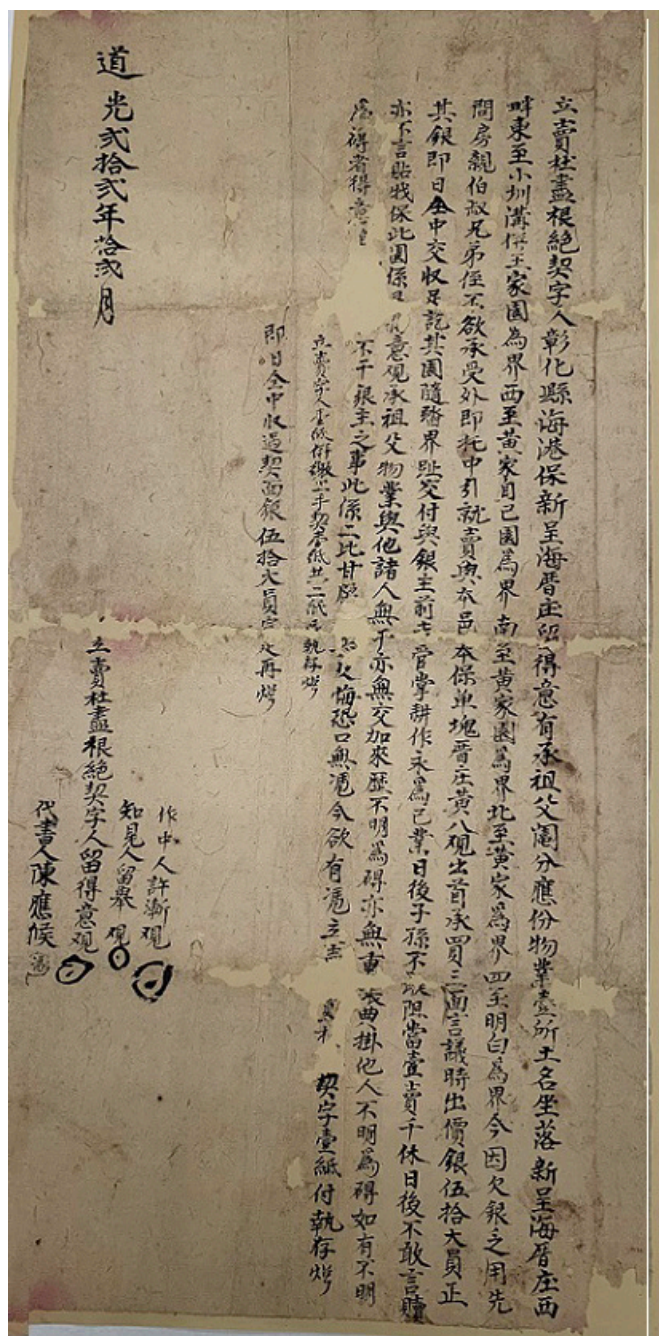 立賣杜盡根絕契字人彰化縣海港保新呈海厝庄留得意有承祖父鬮分應份物業壹所土名坐落新呈海厝庄西
畔東至小圳溝併王家園為界西至黃家自己園為界南至黃家園為界北至黃家為界四至明白為界今因欠銀乏用先
問房親伯叔兄弟侄不欲承受外即托中引就賣與本邑本保車塊厝庄黃八觀出首承買三面言議時出價銀伍拾大員正
其銀即日仝中交收足訖其園隨踏界趾交付與銀主前去管掌耕作永為己業日後子孫不阻當壹賣千休日後不敢言贖
亦不言貼我保此園係意觀承祖父物業與他諸人無干亦無交加來歷不明為碍亦無重張典掛他人不明為碍如有不明
為碍者得意不干銀主之事此係二比甘愿反悔恐口無憑今欲有憑立契字壹紙付執存炤
立賣字人壹紙併繳上手契壹紙共二紙執存炤
即日仝中收過契面銀伍拾大員完足再炤
作中人許漸觀
知見人留舉觀
立賣杜盡根絕契字人留得意觀
代書人陳應候
道光弍拾弍年拾弍月